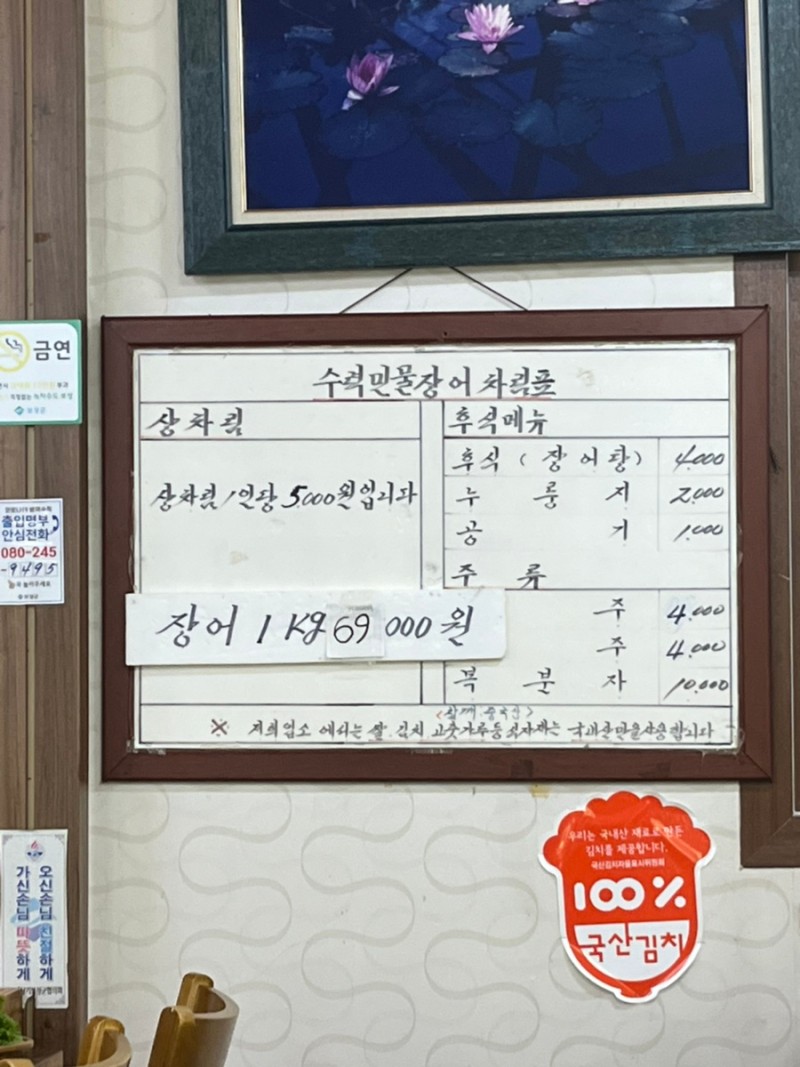 수력민물장어차림표
상차림
상차림 1인당 5,000원입니다
장어 1Kg 69000원
후식메뉴
후식 (장어탕) 4,000
누룽지 2,000
공기 1,000
주류
주 4,000
주 4,000
복분자 10,000
※ 저희업소 에서는 쌀 김치 고춧가루등 식자재는 국내산만을사용합니다
금연
출입명부
안심전화
080-245
-9495
오신손님 친절하게
가신손님 따뜻하게
우리는 국내산 재료로 만든
김치를 제공합니다.
국산김치자율표시위원회
100%
국산김치